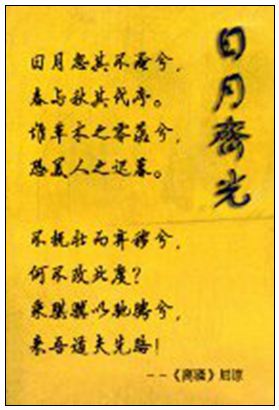 日月齊光
日月忽其不淹兮，
春与秋其代序。
惟草木之零落兮，
恐美人之迟暮。
不抚壮而弃秽兮，
何不改此度？
乘骐骥以驰骋兮，
来吾道夫先路！
--《离骚》屈原